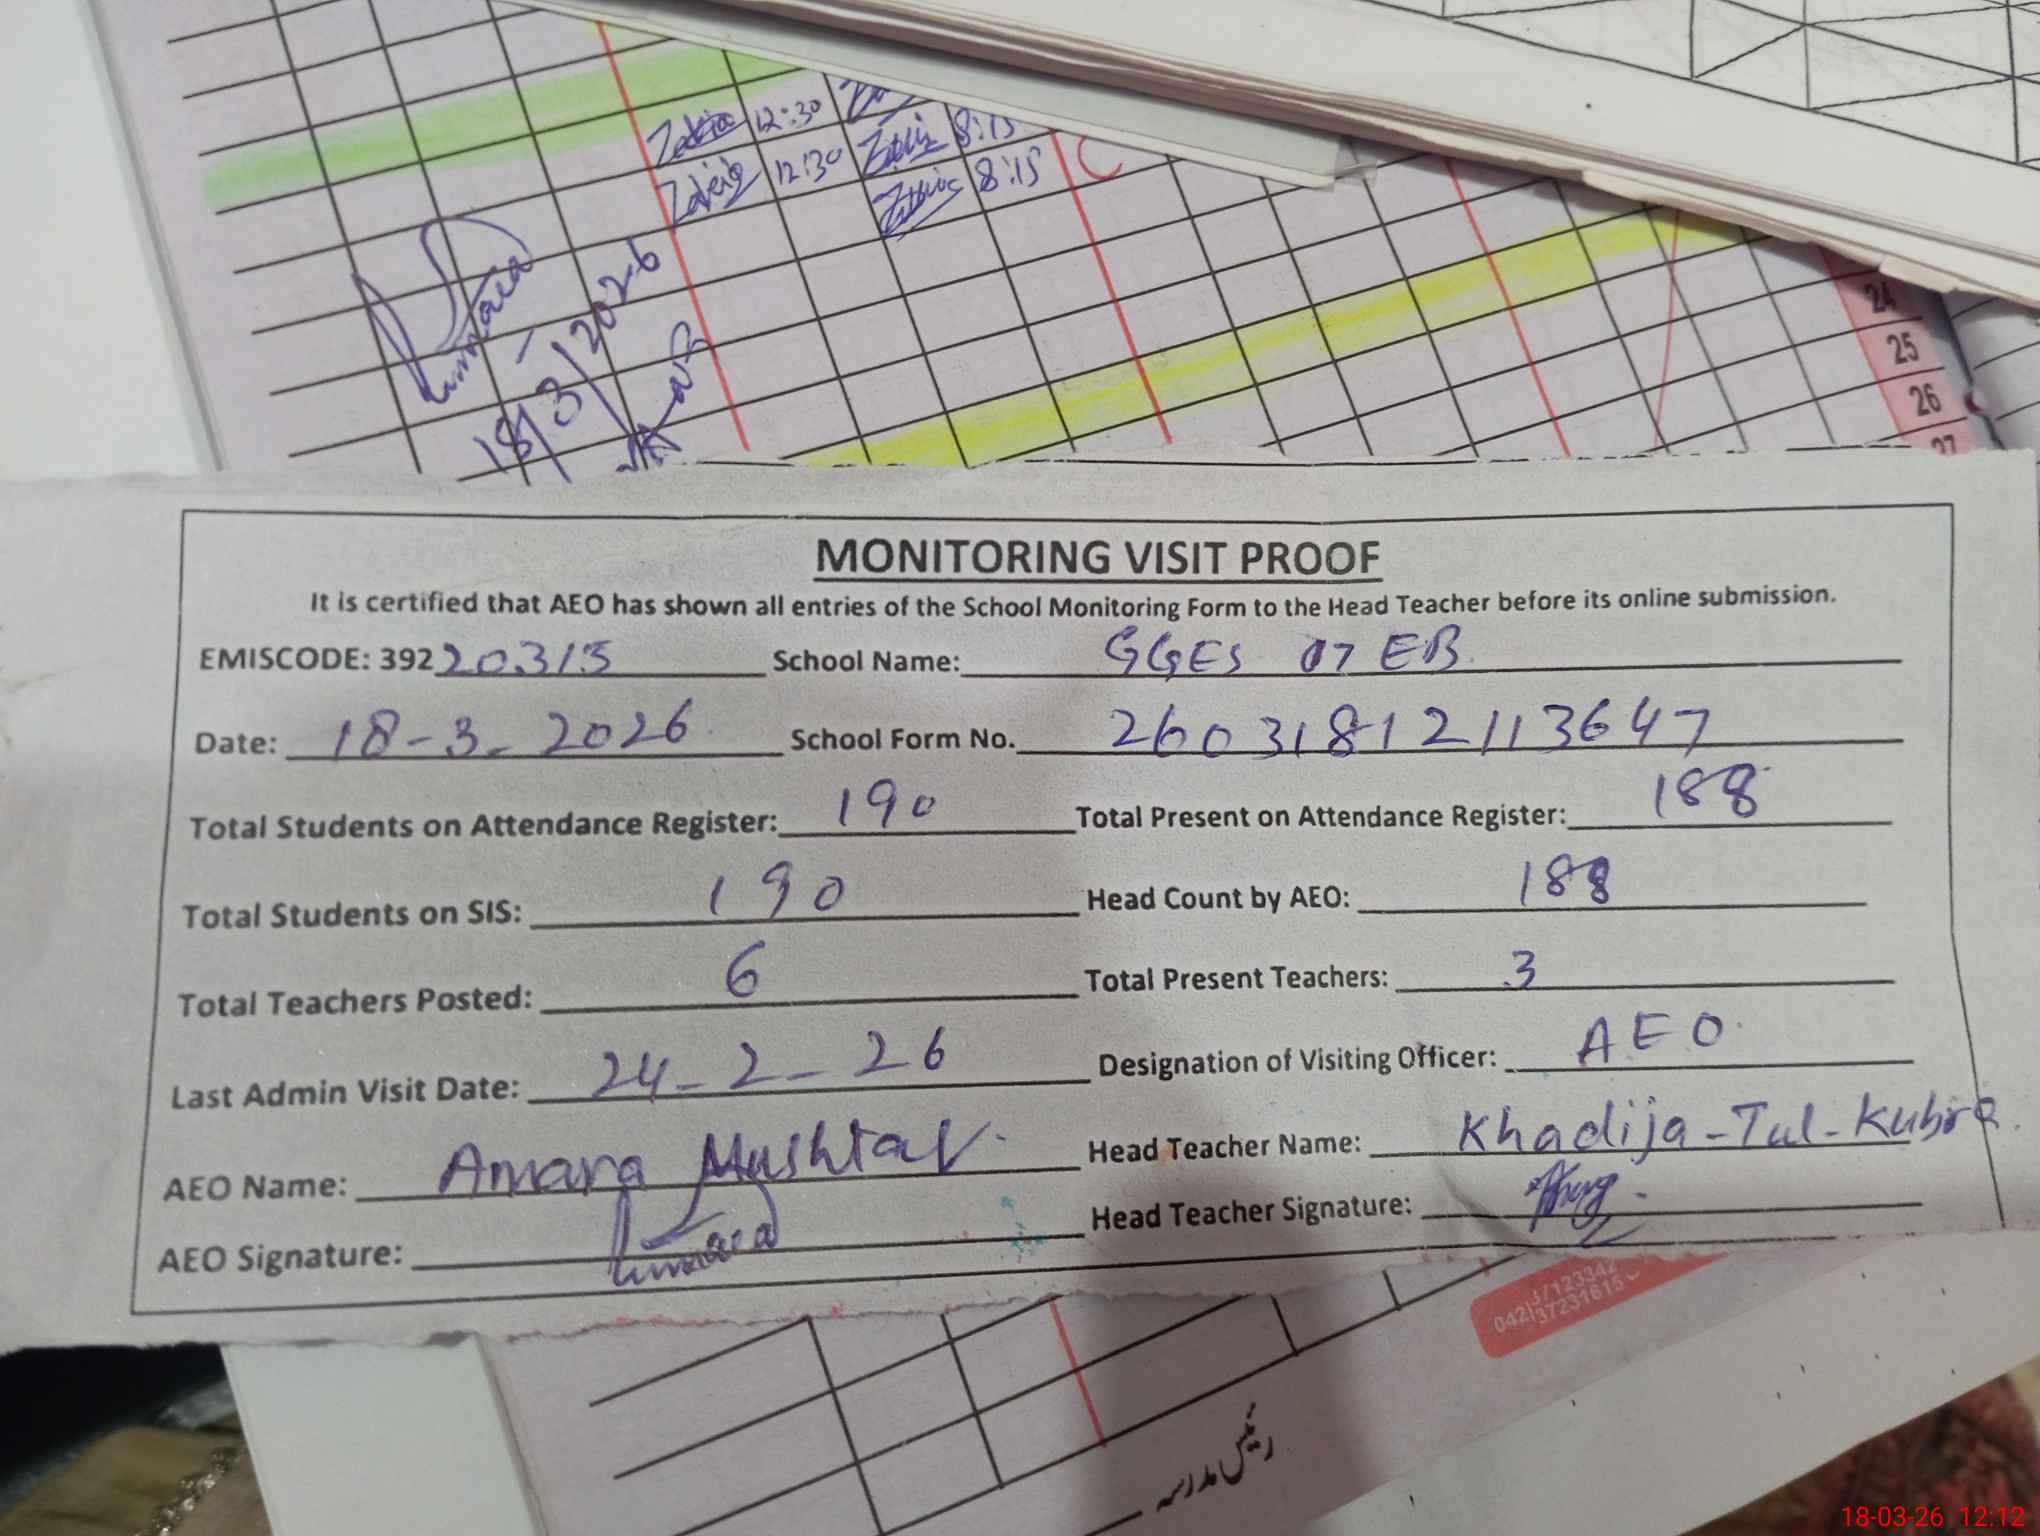 Zakia 12:30
8:15
12:30
8:15
C
18/3/2026
24
25
26
27
MONITORING VISIT PROOF
It is certified that AEO has shown all entries of the School Monitoring Form to the Head Teacher before its online submission.
EMISCODE: 39220315 School Name: GGES 07 EB
Date: 18-3-2026 School Form No. 26031812113647
Total Students on Attendance Register: 190 Total Present on Attendance Register: 188
Total Students on SIS: 190 Head Count by AEO: 188
Total Teachers Posted: 6 Total Present Teachers: 3
Last Admin Visit Date: 24-2-26 Designation of Visiting Officer: AEO
AEO Name: Amara Mushtaq Head Teacher Name: Khadija-Tul-Kubra
AEO Signature: Head Teacher Signature:
042|37231615
رئیس مدرسہ
18-03-26 12:12